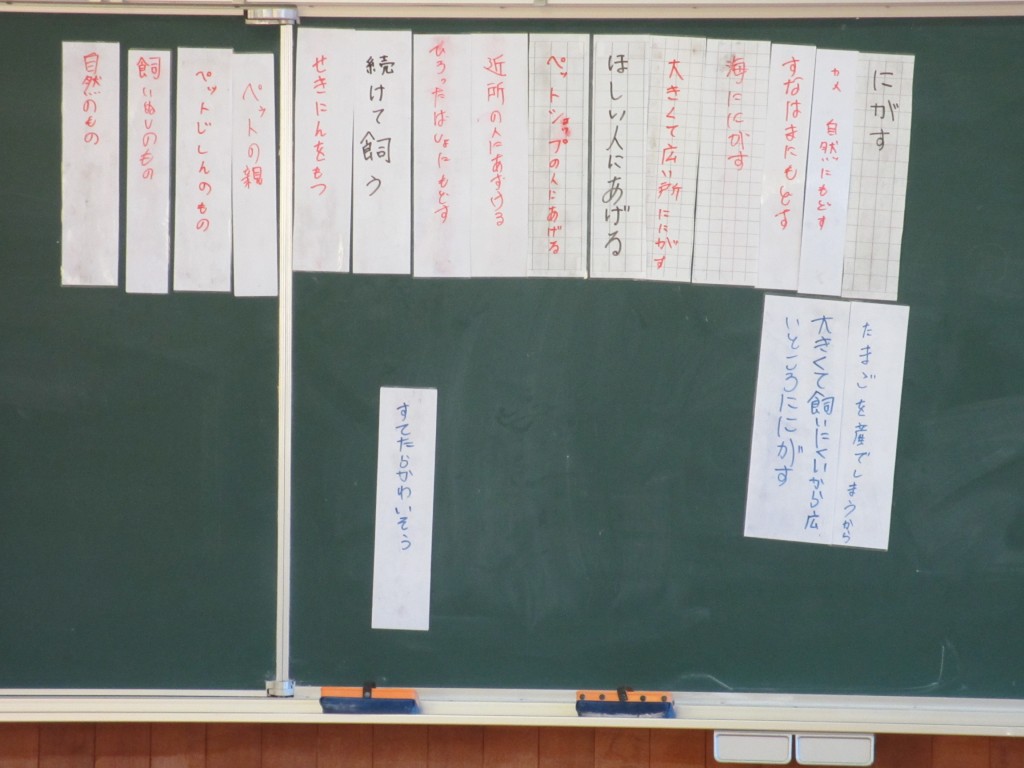 にがす
自然にもどす
すなはまにもどす
海ににがす
大きくて広い所ににがす
ほしい人にあげる
ペットショップの人にあげる
近所の人にあずける
ひろったばしょにもどす
続けて飼う
せきにんをもつ
ペットの親
ペットじしんのもの
飼いぬしのもの
自然のもの
たまごを産でしまうから
大きくて飼いにくいから広
いところににがす
すてたらかわいそう